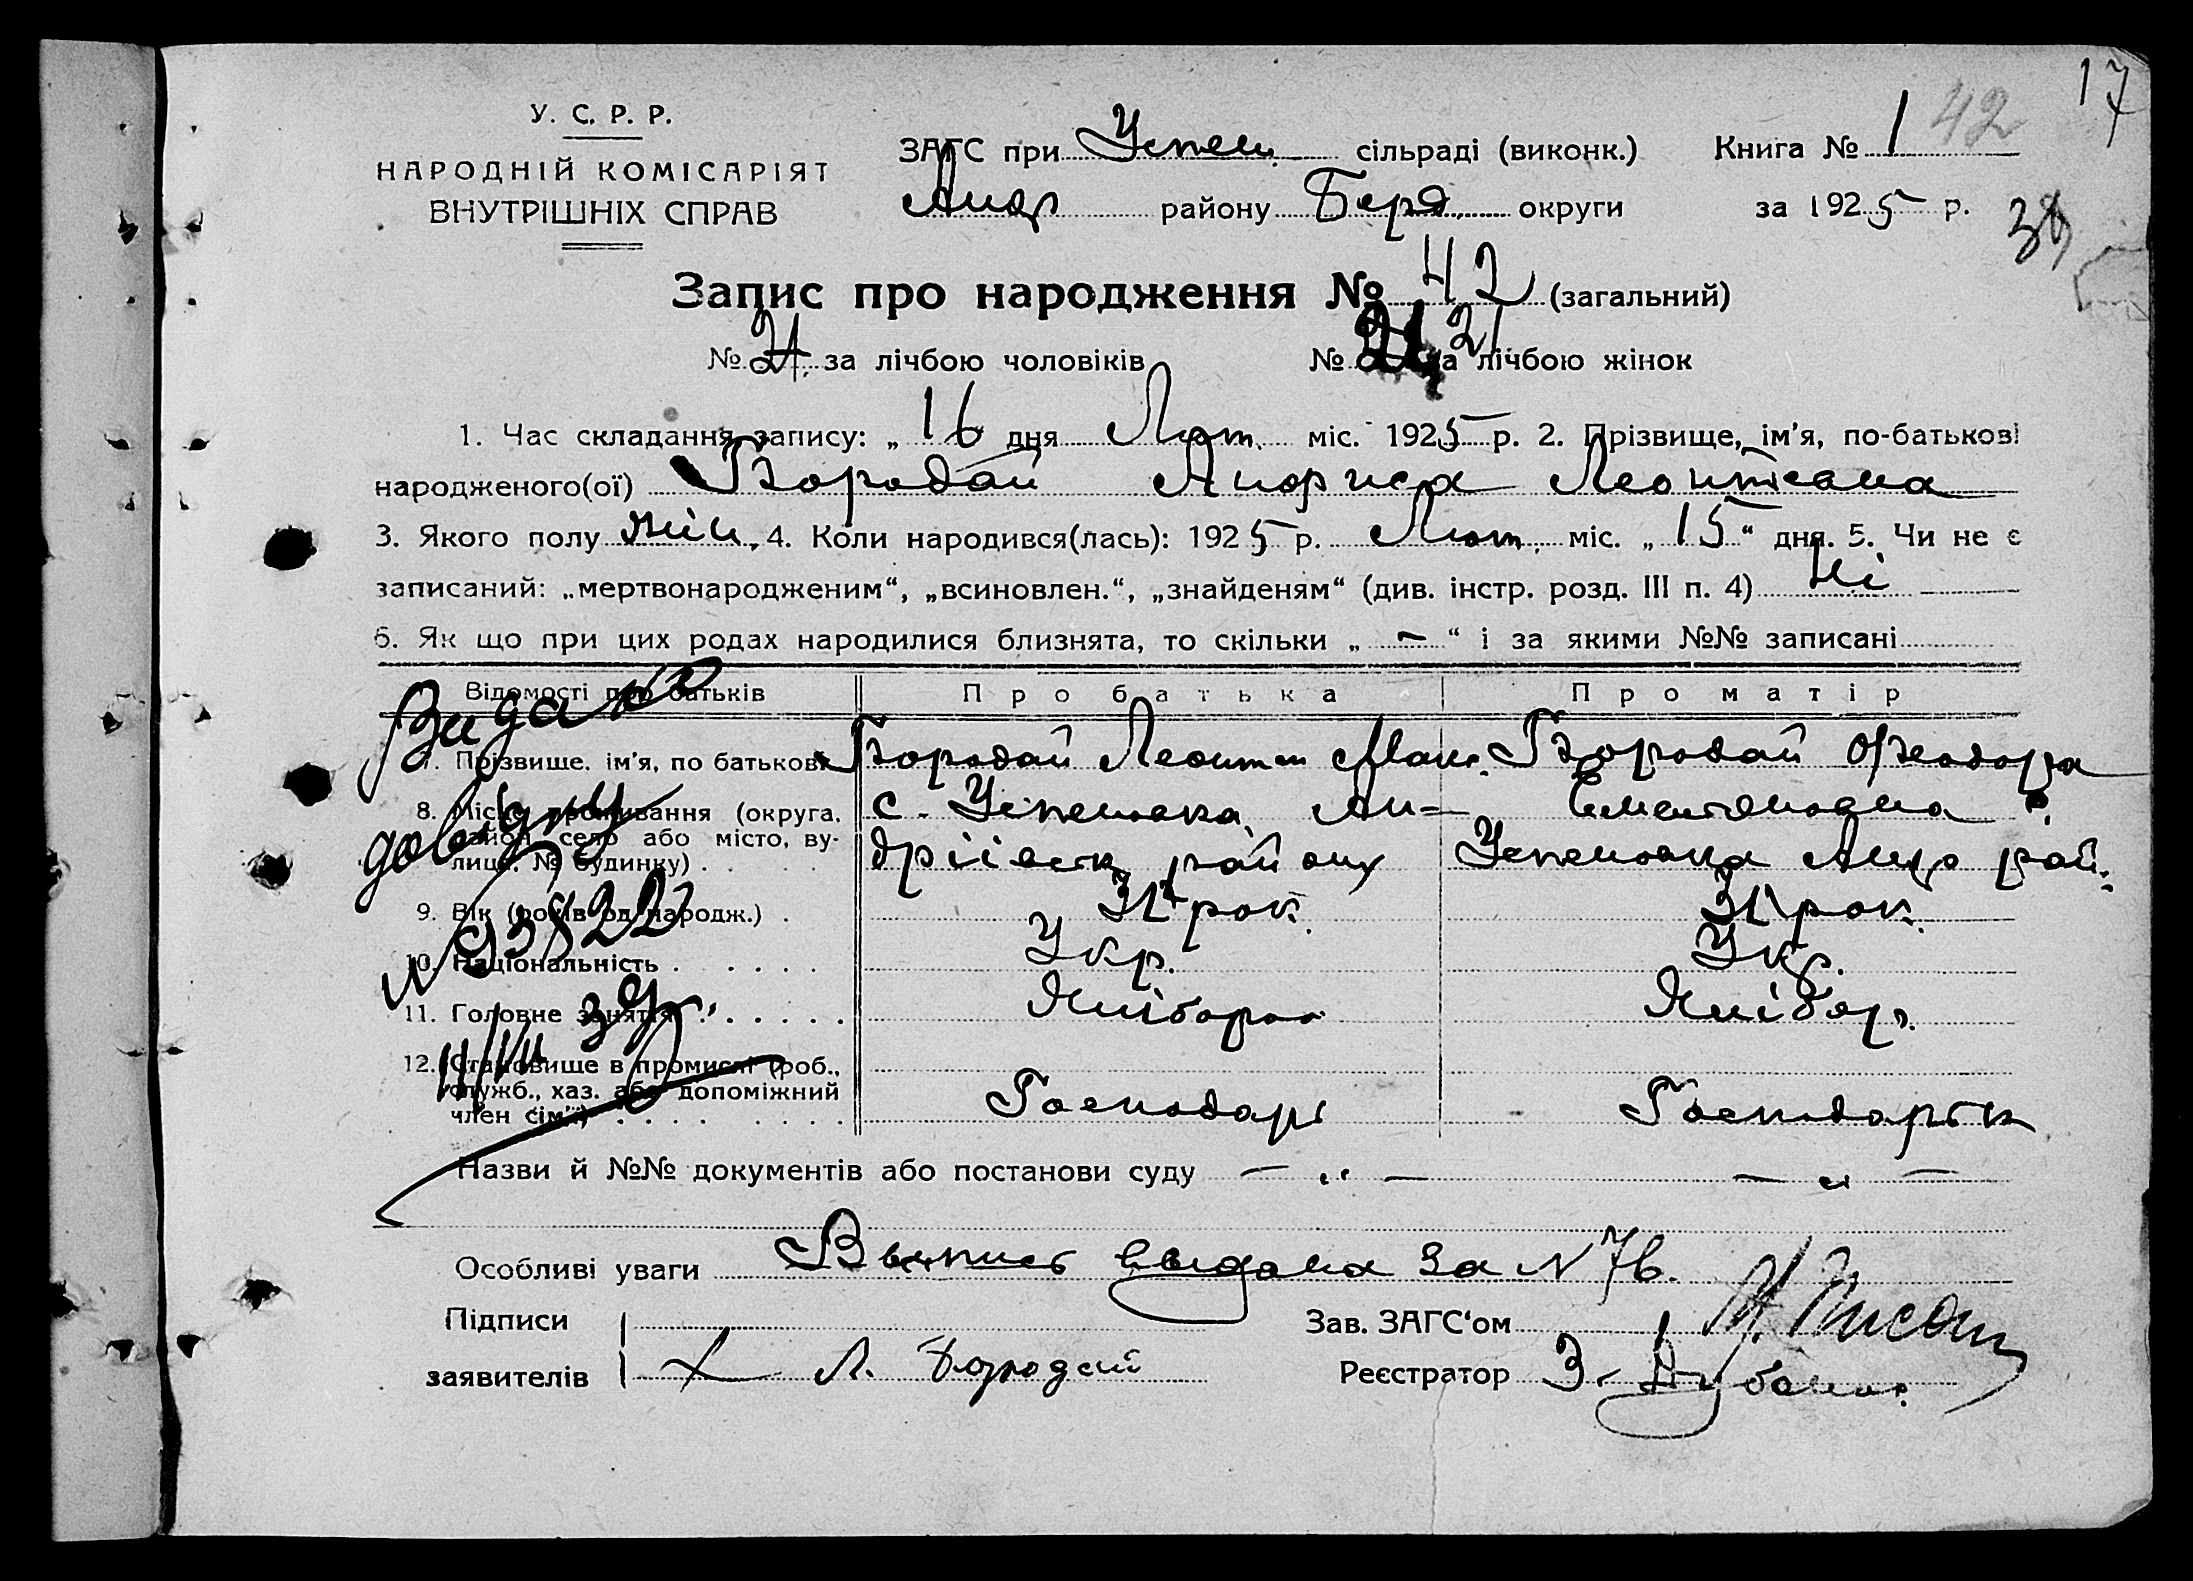 17
У. С. Р. Р.
НАРОДНІЙ КОМІСАРІЯТ
ВНУТРІШНІХ СПРАВ
ЗАГС при Успен. сільраді (виконк.) Книга № 1 42
Андр району Бердя. округи за 1925 р. 38
Запис про народження № 42 (загальний)
№ 21 за лічбою чоловіків № 21 за лічбою жінок
1. Час складання запису: „ 16 дня Лют. міс. 1925 р. 2. Прізвище, ім'я, по-батькові
народженого(ої) Бородай Леонтіевна
3. Якого полу жін. 4. Коли народився(лась): 1925 р. Лют. міс. „ 15 “ дня. 5. Чи не є
записаний: „мертвонародженим“, „всиновлен.“, „знайденям“ (див. інстр. розд. III п. 4) Ні
6. Як що при цих родах народилися близнята, то скільки „ – “ і за якими №№ записані
Відомості про батьків Про батька Про матір
7. Прізвище, ім'я, по батькові Бородай Леонтій Мак. Бородай Феодора
8. Місце проживання (округа, район, село або місто, вулиця, № будинку) с. Успеновка, Ан= Сментоновна
дріївськ району Успеновка Андр рай.
9. Вік (років од народж.) 31 рок. 31 рок.
10. Національність Укр. Укр.
11. Головне заняття Хлібороб Хлібор.
12. Становище в промислі (роб., служб., хаз. або допоміжний член сім'ї) Господарь Господарка
Видано
довідку
№ 93822
Назви й №№ документів або постанови суду — „ — — „ —
Особливі уваги Выпись выдана за N 76.
Підписи
заявителів Л. Бородай
Зав. ЗАГС‘ом
Реєстратор З.